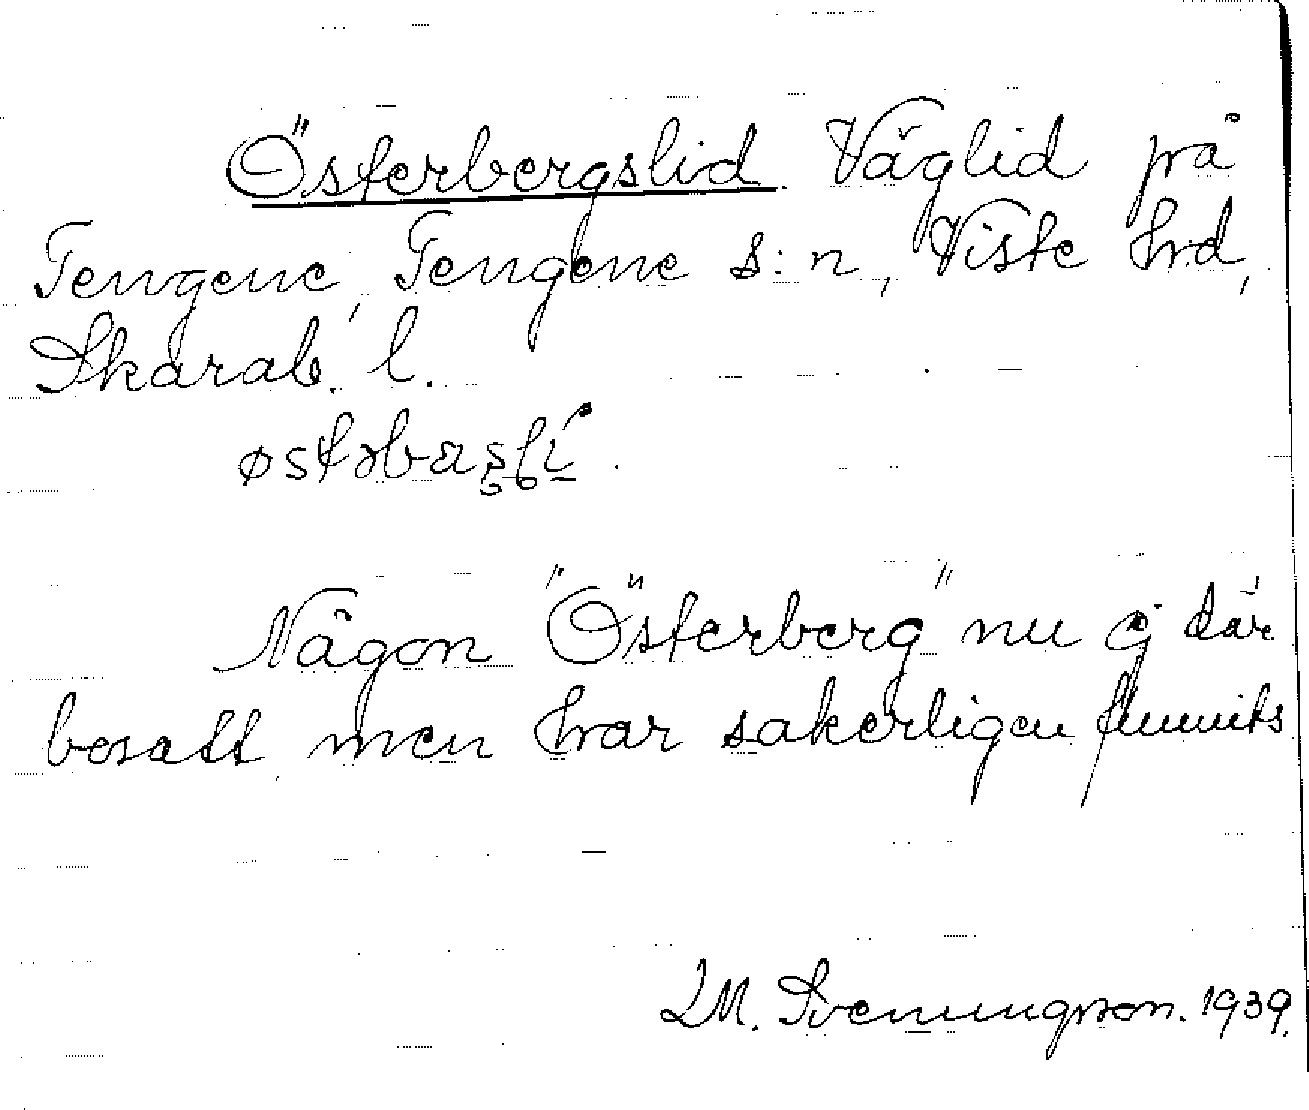 Österbergslid. Väglid på
Tengene, Tengene s:n, Viste hrd,
Skarab. l.
Någon "Österberg" nu ej där
bosatt men har sakerligen funnits
LM. Svenungson. 1939.